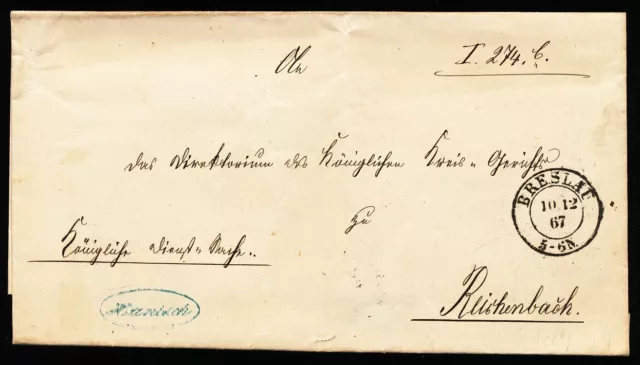 An
I. 274. b.
das Direktorium des Königlichen Kreis=Gerichts
BRESLAU
10 12
67
5-6N.
zu
Königliche Dienst=Sache.
Reichenbach.